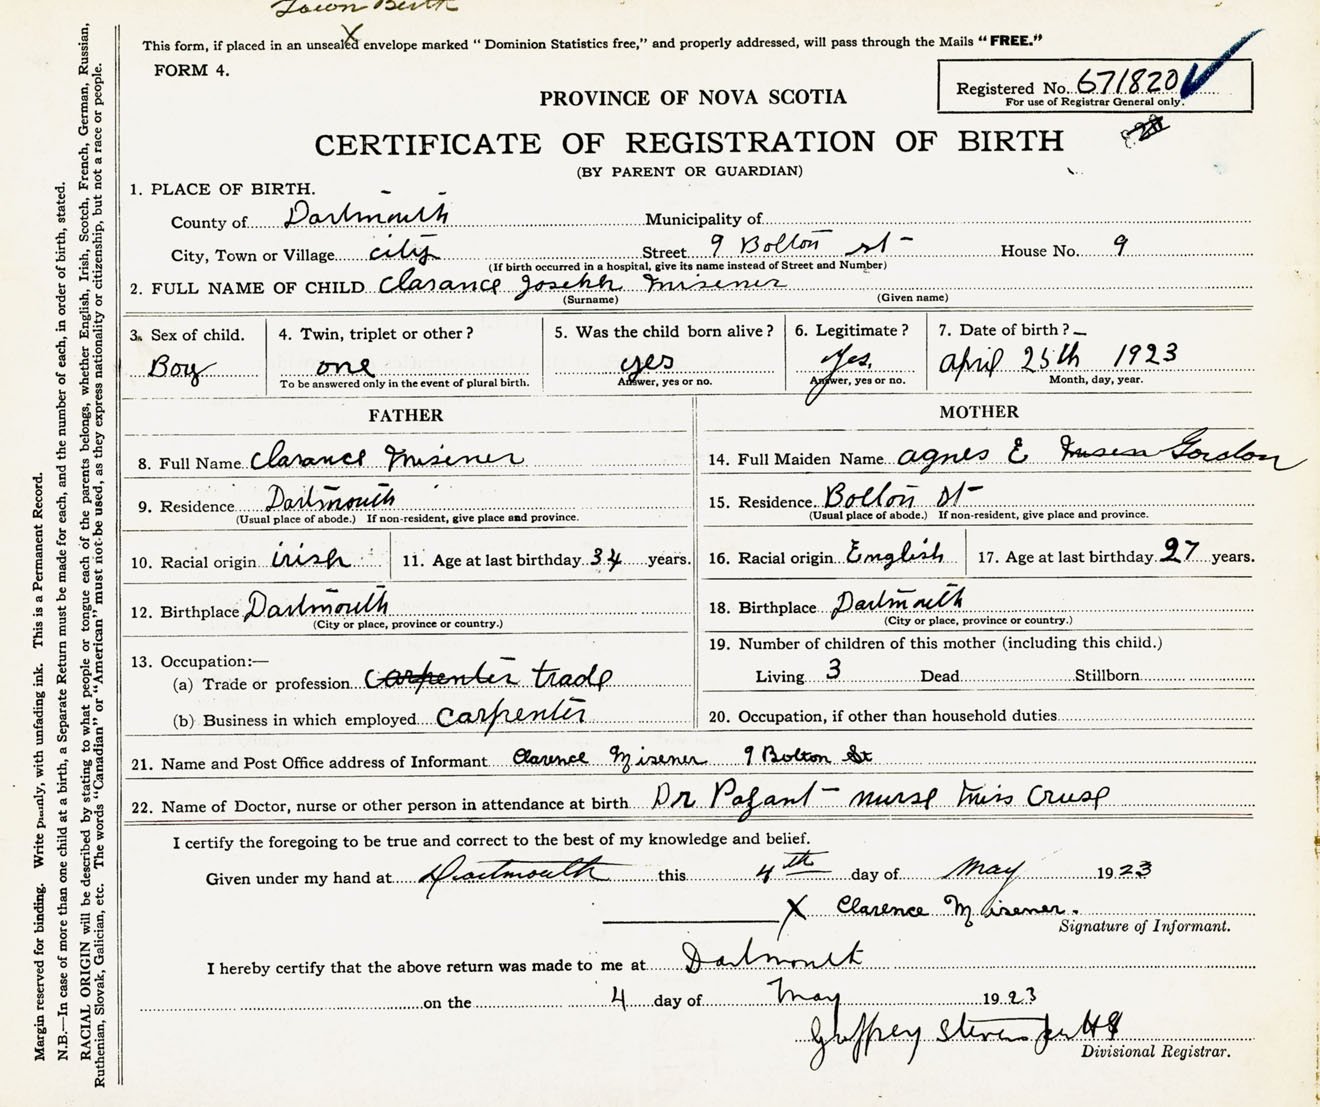 Town Birth
X
This form, if placed in an unsealed envelope marked "Dominion Statistics free," and properly addressed, will pass through the Mails "FREE."
FORM 4.
Registered No. 671820
For use of Registrar General only.
PROVINCE OF NOVA SCOTIA
CERTIFICATE OF REGISTRATION OF BIRTH
(BY PARENT OR GUARDIAN)
1. PLACE OF BIRTH.
County of Dartmouth Municipality of
City, Town or Village city Street 9 Bolton st House No. 9
(If birth occurred in a hospital, give its name instead of Street and Number)
2. FULL NAME OF CHILD Clarance Joseph Misener
(Surname) (Given name)
3. Sex of child. 4. Twin, triplet or other? 5. Was the child born alive? 6. Legitimate? 7. Date of birth?
Boy one yes Yes. April 25th 1923
To be answered only in the event of plural birth. Answer, yes or no. Answer, yes or no. Month, day, year.
FATHER MOTHER
8. Full Name Clarance Misener 14. Full Maiden Name agnes E Gordon
9. Residence Dartmouth 15. Residence Bolton st
(Usual place of abode.) If non-resident, give place and province. (Usual place of abode.) If non-resident, give place and province.
10. Racial origin irish 11. Age at last birthday 34 years. 16. Racial origin English 17. Age at last birthday 27 years.
12. Birthplace Dartmouth 18. Birthplace Dartmouth
(City or place, province or country.) (City or place, province or country.)
19. Number of children of this mother (including this child.)
13. Occupation:—
(a) Trade or profession carpenter trade Living 3 Dead Stillborn
(b) Business in which employed carpenter 20. Occupation, if other than household duties
21. Name and Post Office address of Informant Clarence Misener 9 Bolton St
22. Name of Doctor, nurse or other person in attendance at birth Dr nurse Miss
I certify the foregoing to be true and correct to the best of my knowledge and belief.
Given under my hand at Dartmouth this 4th day of May 1923
X Clarence Misener.
Signature of Informant.
I hereby certify that the above return was made to me at Dartmouth
on the 4 day of May 1923
Divisional Registrar.
Margin reserved for binding. Write plainly, with unfading ink. This is a Permanent Record.
N.B.—In case of more than one child at a birth, a Separate Return must be made for each, and the number of each, in order of birth, stated.
RACIAL ORIGIN will be described by stating to what people or tongue each of the parents belongs, whether English, Irish, Scotch, French, German, Russian,
Ruthenian, Slovak, Galician, etc. The words "Canadian" or "American" must not be used, as they express nationality or citizenship, but not a race or people.